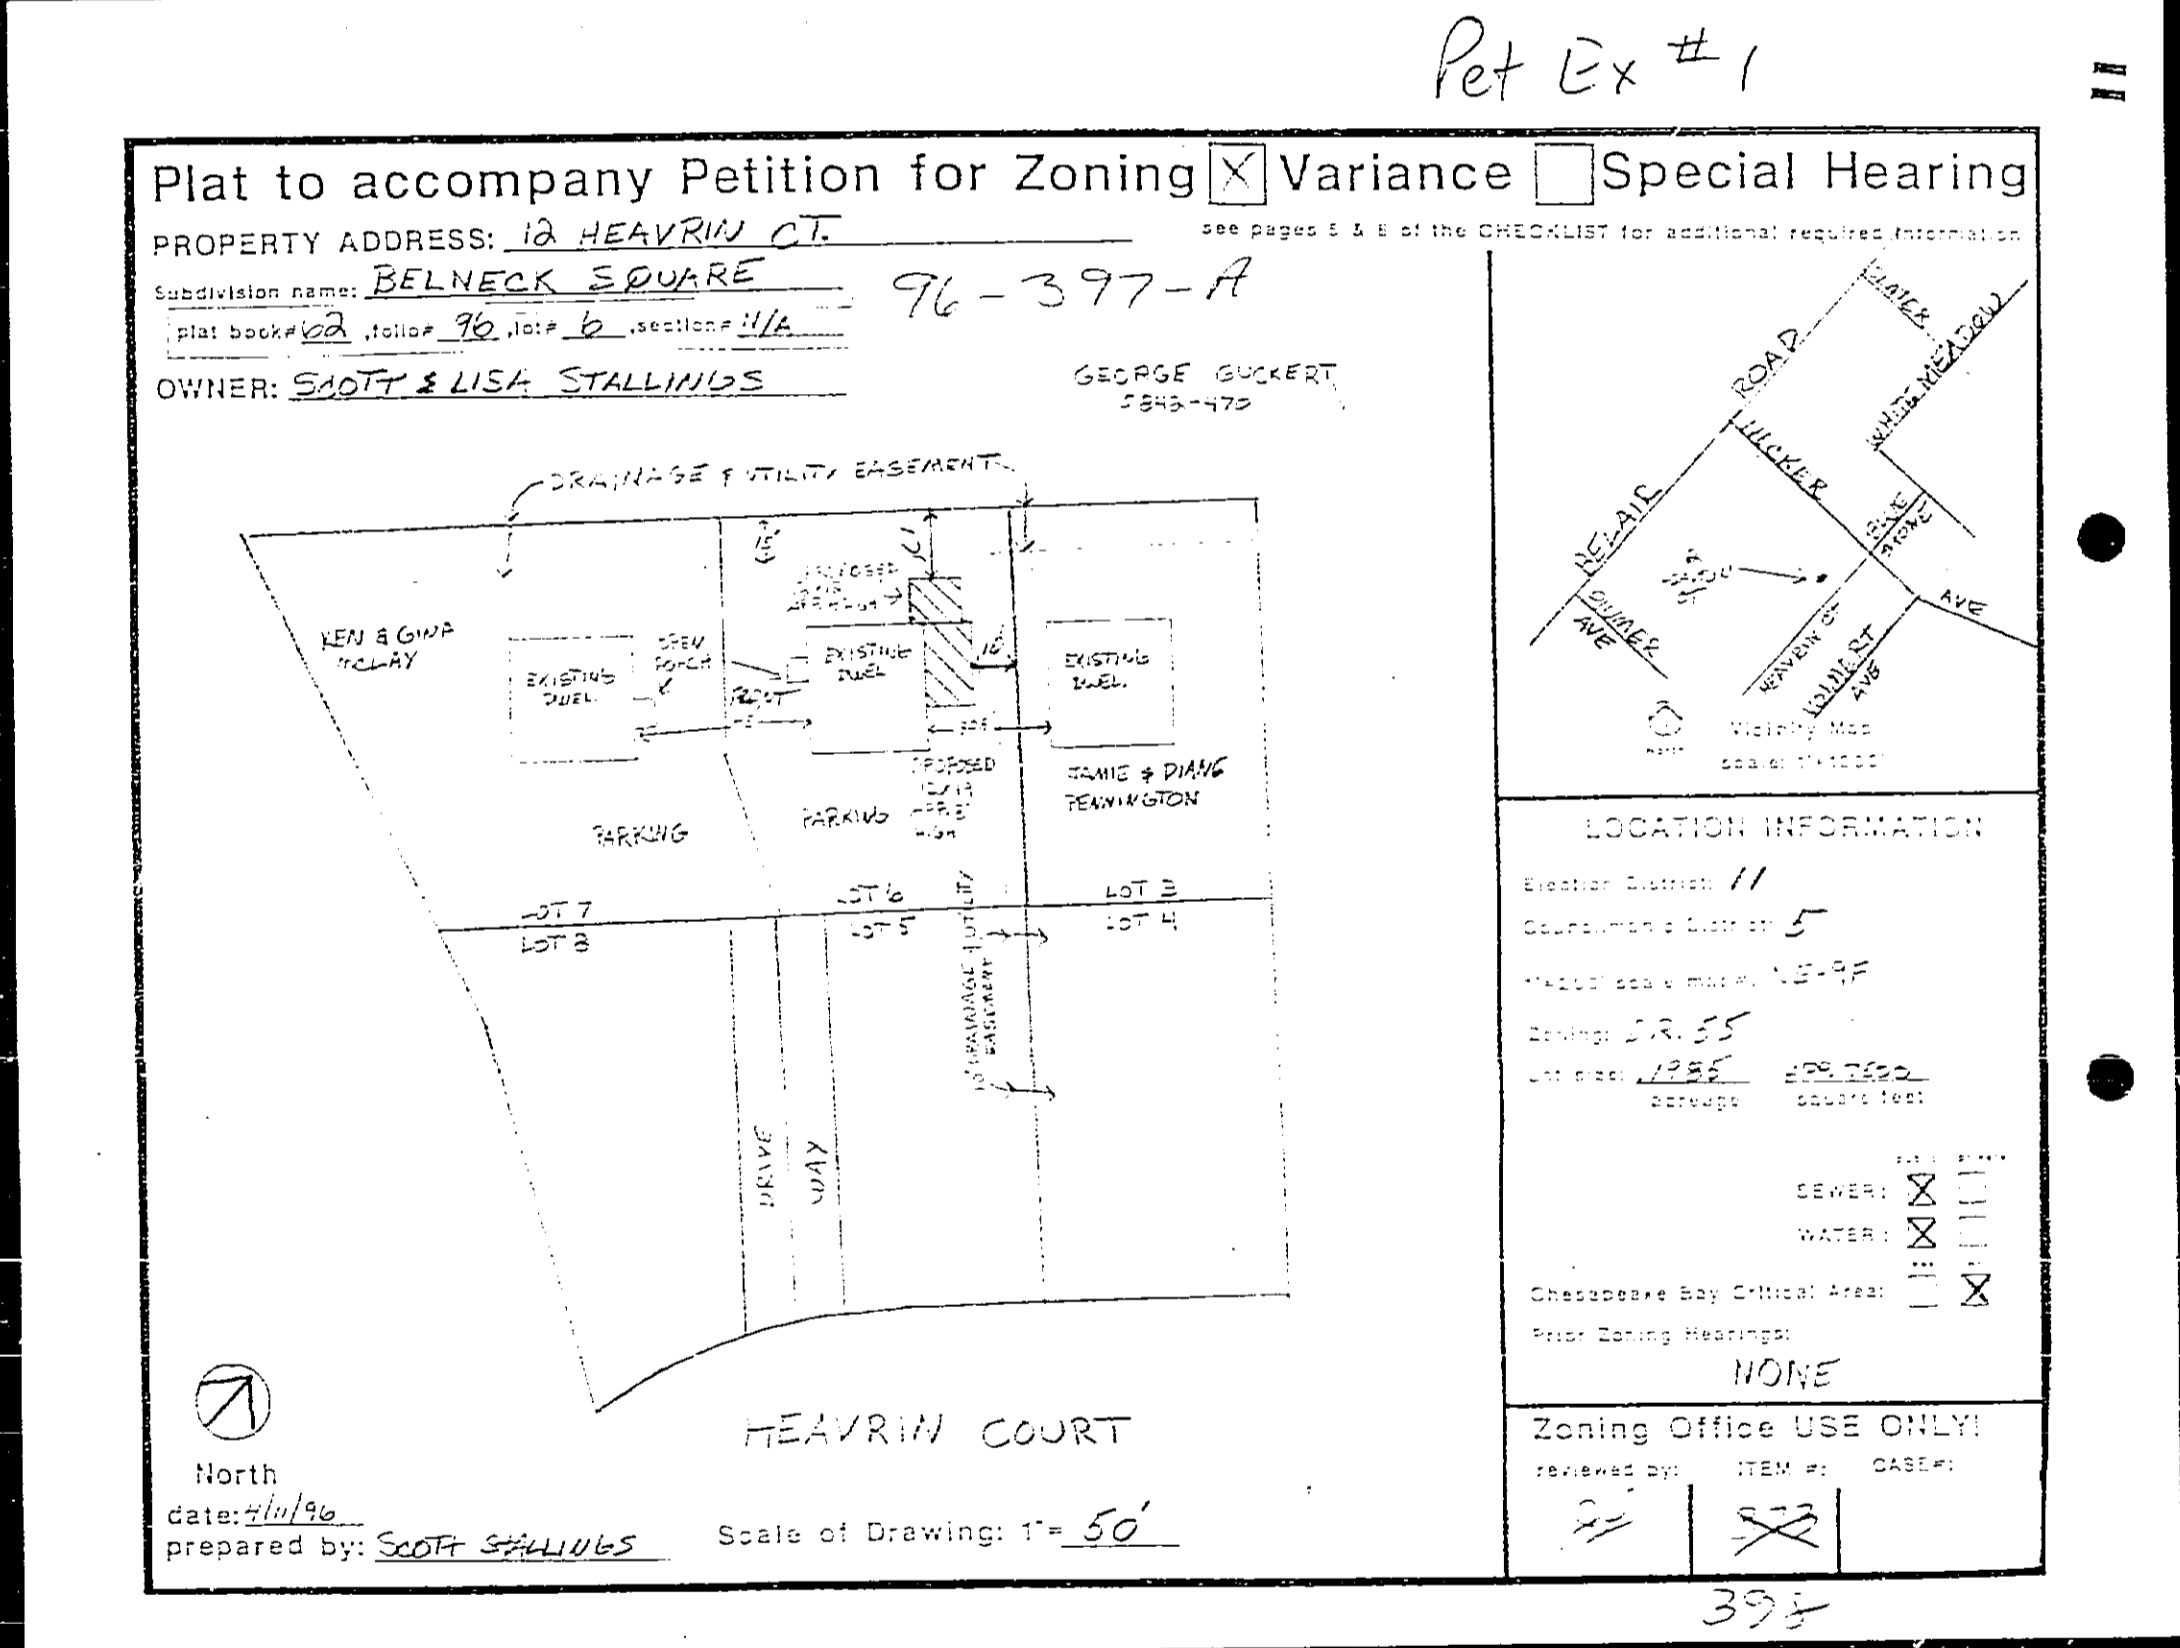 Pet Ex #1
Plat to accompany Petition for Zoning X Variance Special Hearing
PROPERTY ADDRESS: 12 HEAVRIN CT.
see pages 5 & 6 of the CHECKLIST for additional required information
Subdivision name: BELNECK SQUARE
96-397-A
plat book# 62, folio# 96, lot# 6, section# N/A
OWNER: SCOTT & LISA STALLINGS
GEORGE GUCKERT
DRAINAGE & UTILITY EASEMENT
KEN & GINA
McLAY
EXISTING
DWEL.
OPEN
PORCH
FRONT
EXISTING
DWEL
EXISTING
DWEL.
PROPOSED
HIGH
JAMIE & DIANE
PENNINGTON
PARKING
PARKING
LOT 7
LOT 8
LOT 6
LOT 5
LOT 3
LOT 4
10' DRAINAGE & UTILITY
EASEMENT
DRIVE
WAY
HEAVRIN COURT
North
date: 4/11/96
prepared by: SCOTT STALLINGS
Scale of Drawing: 1"= 50'
BELAIR
ROAD
WHITE MEADOW
BLUE
STONE
AVE
AVE
HEAVRIN CT
AVE
North
Vicinity Map
scale: 1"=1000'
LOCATION INFORMATION
Election District: 11
Councilmanic District: 5
1"=200' scale map#: NE-9F
Zoning: D.R. 5.5
Lot size: .1985
acreage square feet
SEWER: X
WATER: X
Chesapeake Bay Critical Area: X
Prior Zoning Hearings:
NONE
Zoning Office USE ONLY!
reviewed by: ITEM #: CASE#: